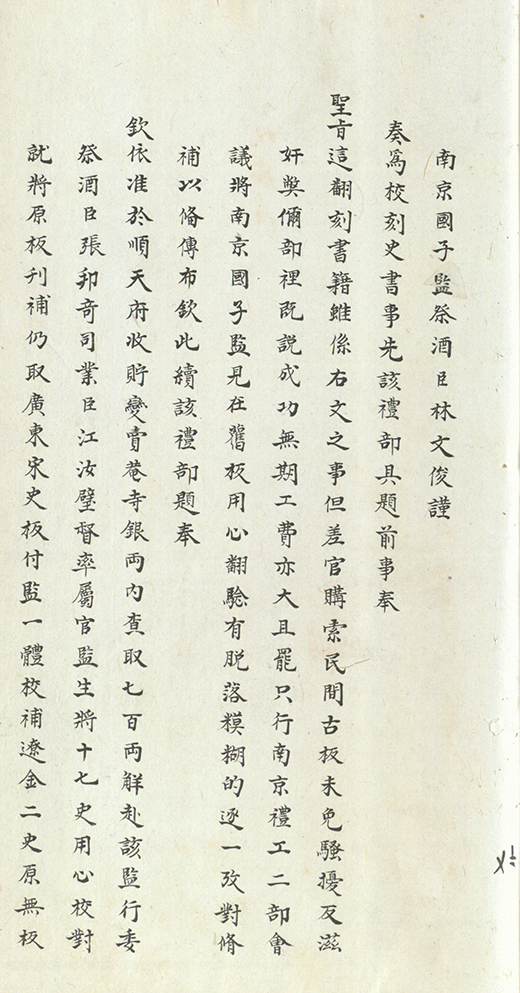 南京國子監祭酒臣林文俊謹
奏爲校刻史書事先該禮部具題前事奉
聖旨這翻刻書籍雖係右文之事但差官購索民間古板未免騷擾反滋
奸弊儞部裡既說成功無期工費亦大且罷只行南京禮工二部會
議將南京國子監見在舊板用心翻驗有脱落糢糊的逐一攷對脩
補以偹傳布欽此續該禮部題奉
欽依准於順天府收貯變賣菴寺銀両内查取七百両觧赴該監行委
祭酒臣張邦奇司業臣江汝璧督率屬官監生將十七史用心校對
就將原板刊補仍取廣東宋史板付監一體校補遼金二史原無板